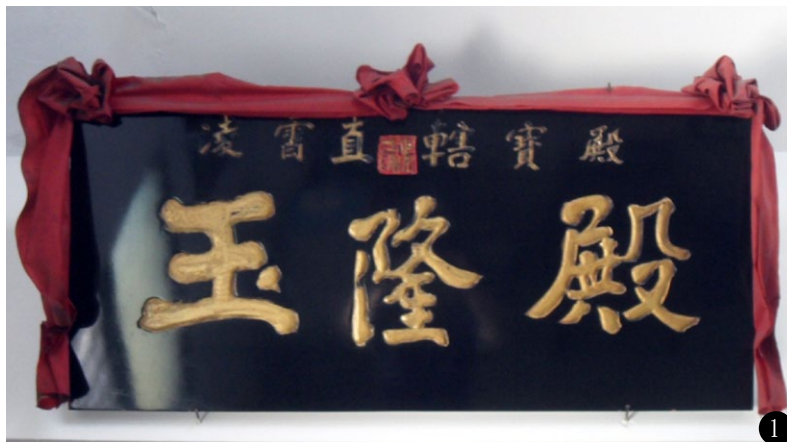 凌霄直轄寶殿
玉隆殿
1